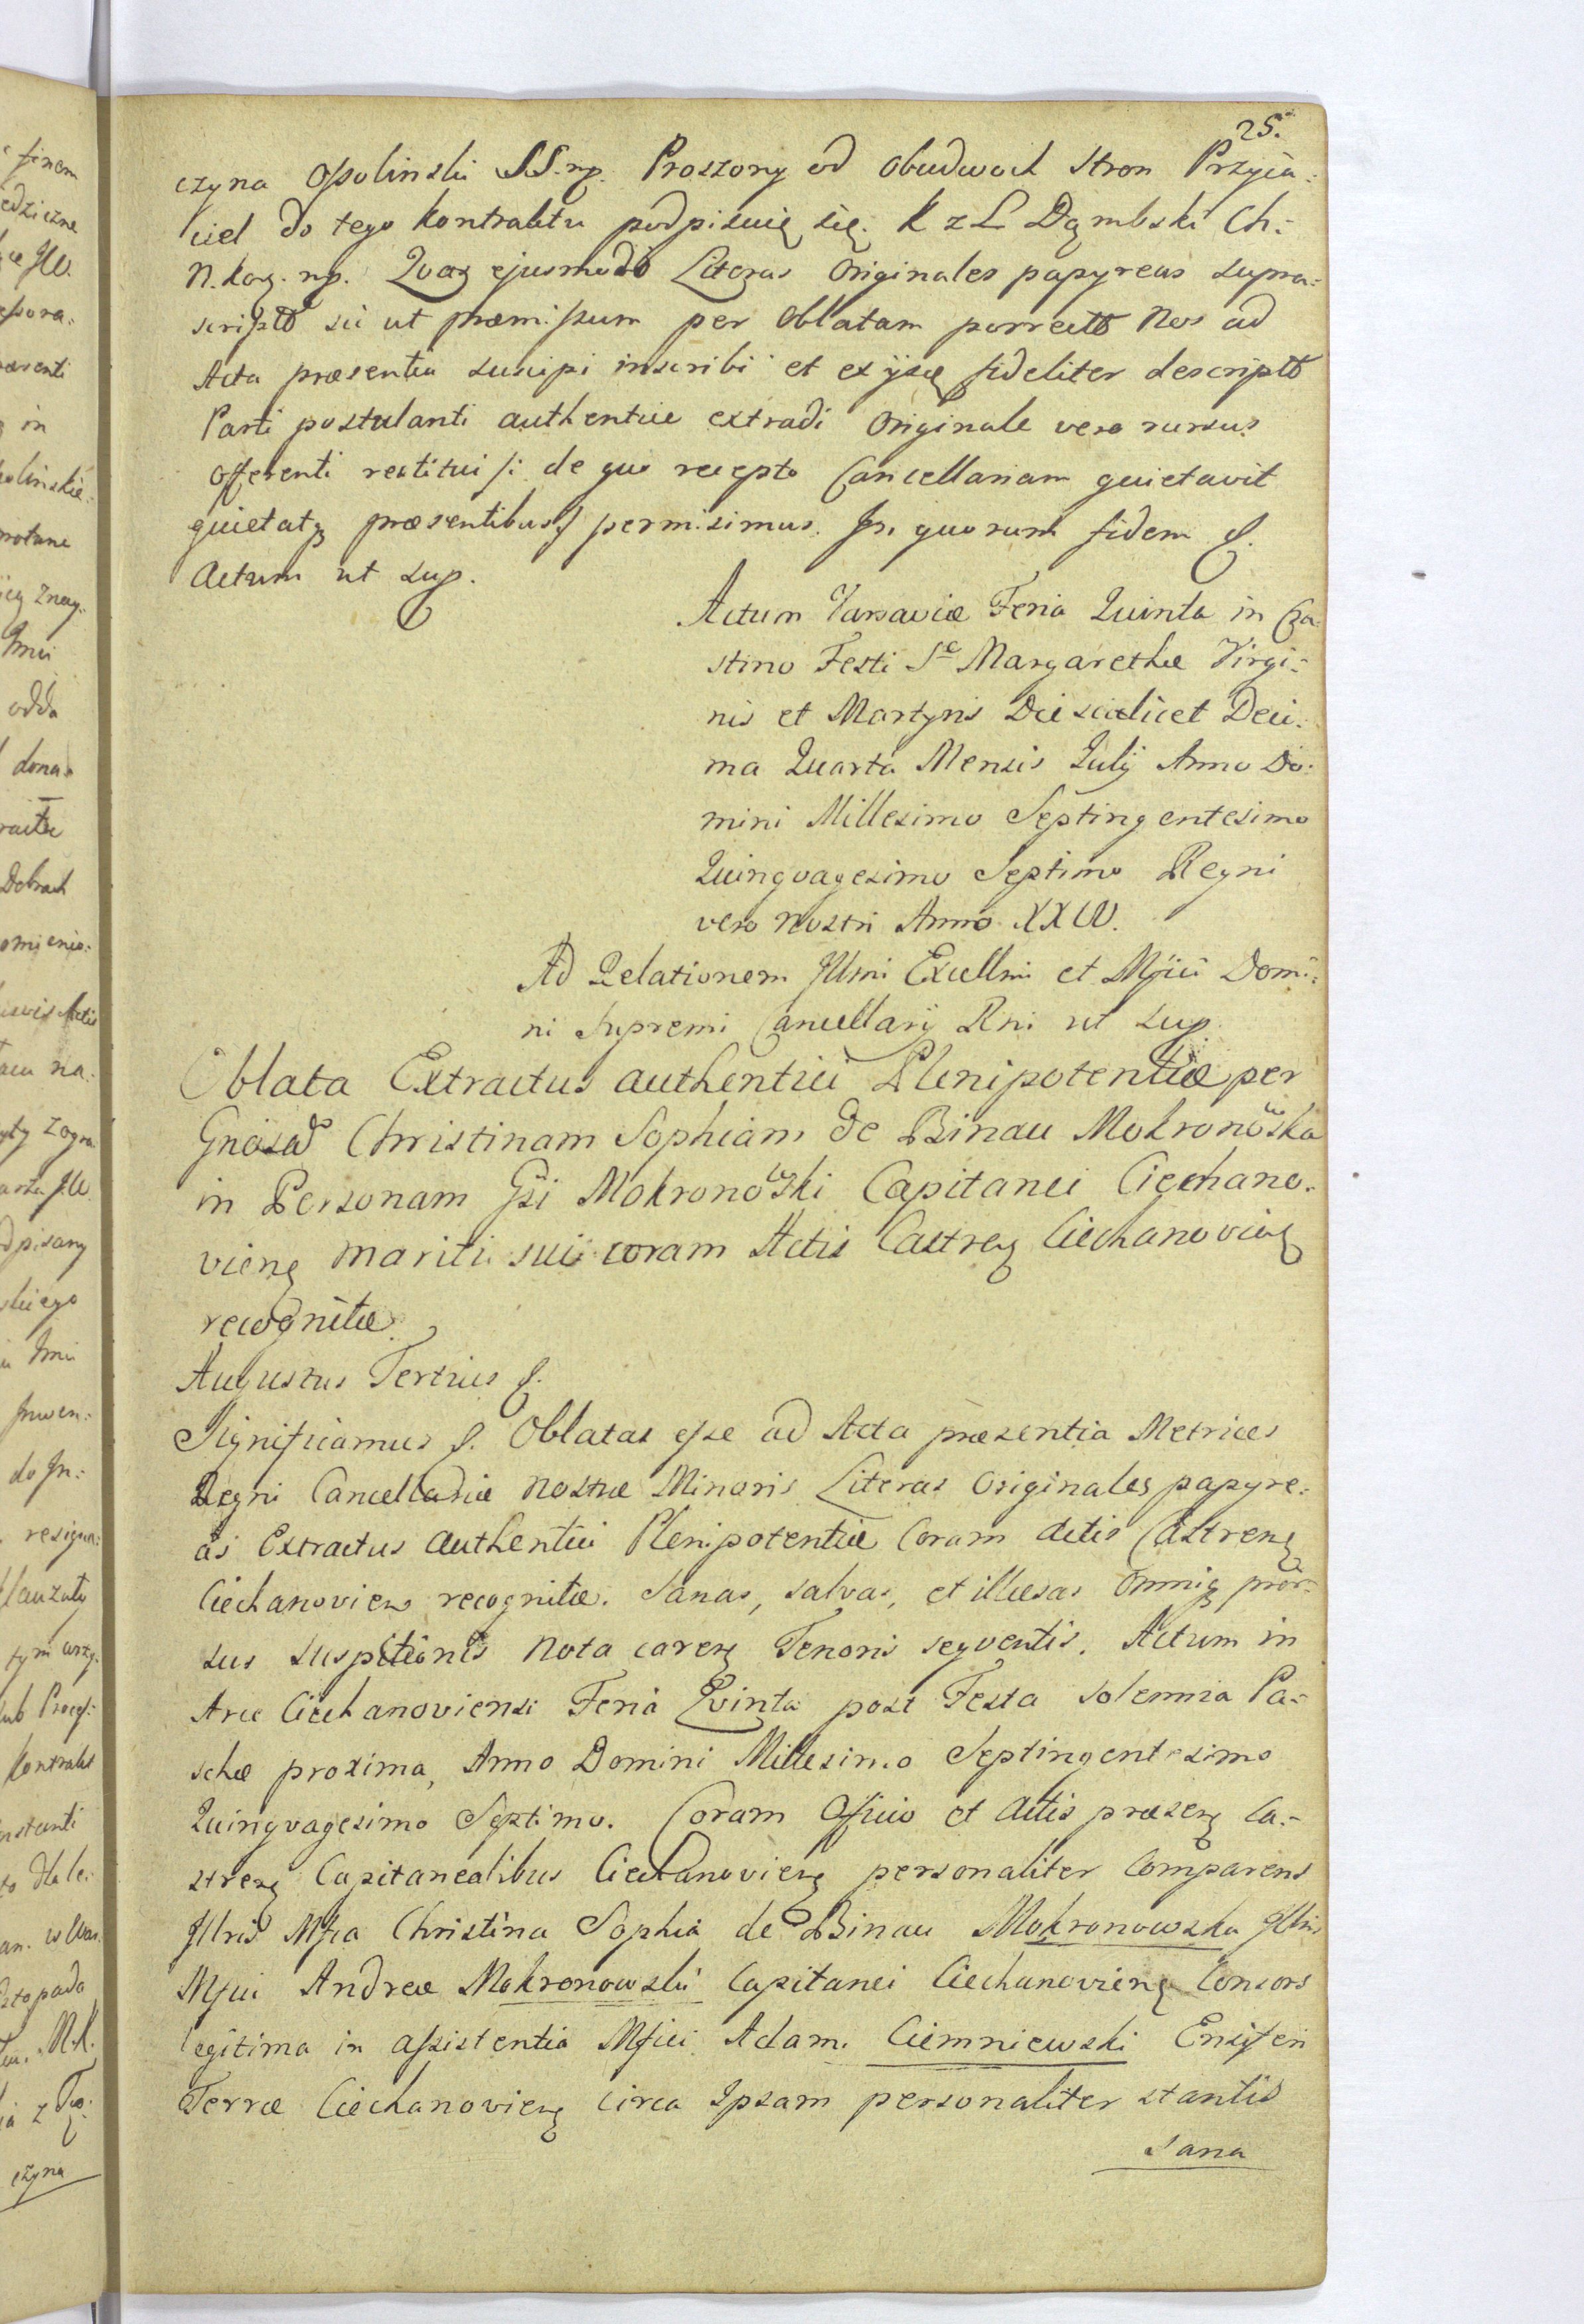 25.
czyna Ossolinski SS. mp. Proszony od obudwoch stron Przyia-
ciel do tego kontraktu podpisuię się. K z L Dąmbski Ch:
N. kor. mp. Quas ejusmodi Literas Originales papyreas supra-
scriptas sic ut præmissum per Oblatam porrectas Nos ad
Acta præsentia suscipi inscribi et ex ijsdem fideliter descriptas
Parti postulanti authentice extradi Originale vero rursus
offerenti restitui /: de quo recepto Cancellariam quietavit
quietatq præsentibus :/ permisimus. In quorum fidem &.
Actum ut sup.
Actum Varsaviæ Feria Quinta in Cra-
stino Festi Sæ Margarethæ Virgi-
nis et Martyris Die scilicet Deci-
ma Quarta Mensis Julij Anno Do-
mini Millesimo Septingentesimo
Quinqvagesimo Septimo Regni
vero Nostri Anno XXIV.
Ad Relationem Illmi Excellmi et Mfici Domi-
ni Supremi Cancellarij Rni ut sup.
Oblata Extractus authentici Plenipotentiæ per
Gnosam Christinam Sophiam de Binau Mokronowska
in Personam Gsi Mokronowski Capitanei Ciechano-
vien mariti sui coram Actis Castren Ciechanovien
recognitæ.
Augustus Tertius &.
Significamus &. Oblatas esse ad Acta præsentia Metrices
Regni Cancellariæ Nostræ Minoris Literas Originales papyre-
as Extractus Authentici Plenipotentiæ Coram Actis Castren
Ciechanovien recognitæ. Sanas, salvas, et illæsas omniq pror-
sus suspitionis nota caren Tenoris seqventis. Actum in
Arce Ciechanoviensi Feria Qvinta post Festa solemnia Pa-
schæ proxima, Anno Domini Millesimo Septingentesimo
Quinqvagesimo Septimo. Coram Officio et Actis præsen Ca-
stren Capitanealibus Ciechanovien personaliter Comparens
Illris Mfca Christina Sophia de Binau Mokronowska Illris
Mfici Andreæ Mokronowski Capitanei Ciechanovien Consors
legitima in assistentia Mfici Adam. Ciemniewski Ensiferi
Terræ Ciechanovien circa Ipsam personaliter stantis
Sana